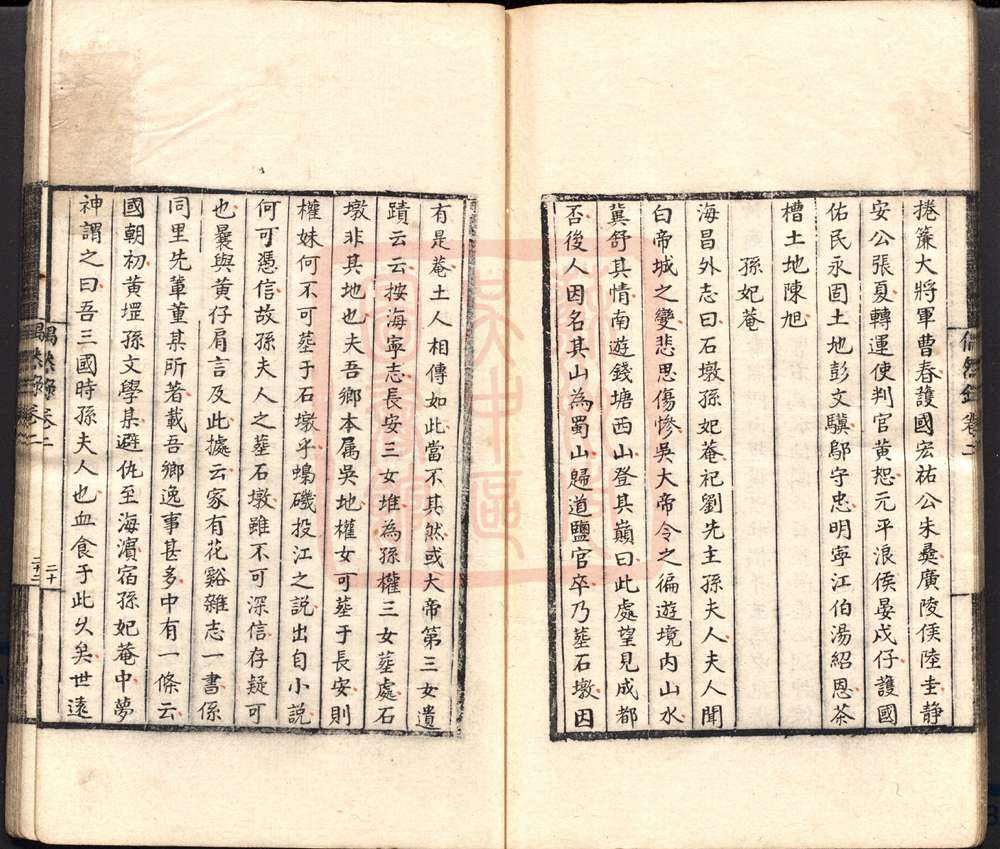 捲簾大將軍曹春護國宏祐公朱彝廣陵侯陸圭靜
安公張夏轉運使判官黃恕元平浪侯晏戍仔護國
佑民永固土地彭文驥鄔守忠明寧江伯湯紹恩茶
槽土地陳旭
孫妃菴
海昌外志曰石墩孫妃菴祀劉先主孫夫人夫人聞
白帝城之變悲思傷慘吳大帝令之徧遊境内山水
冀舒其情南遊錢塘西山登其巔曰此處望見成都
否後人因名其山為蜀山歸道鹽官卒乃塟石墩因
有是菴土人相傳如此當不其然或大帝第三女遺
蹟云云按海寧志長安三女堆為孫權三女塟處石
墩非其地也夫吾鄉本屬吳地權女可塟于長安則
權妹何不可塟于石墩乎蟂磯投江之說出自小說
何可憑信故孫夫人之塟石墩雖不可深信存疑可
也曩與黃仔肩言及此據云家有花谿雜志一書係
同里先軰董某所著載吾鄉逸事甚多中有一條云
國朝初黃墰孫文學某避仇至海濵宿孫妃菴中夢
神謂之曰吾三國時孫夫人也血食于此乆矣世遠
偶然錄 卷二
二十
二十二